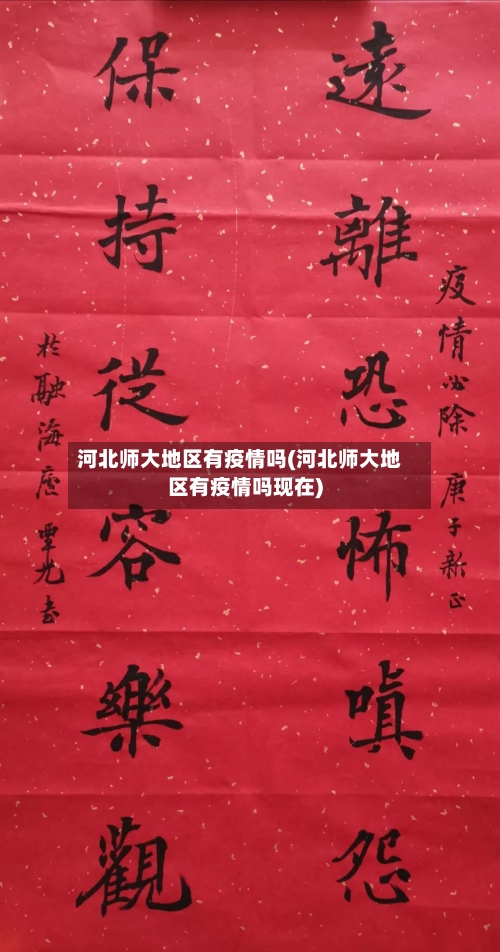 疫情必除 庚子新正
遠離恐怖嗔怨
保持從容樂觀
於融海廬 覃光書
河北师大地区有疫情吗(河北师大地
区有疫情吗现在)